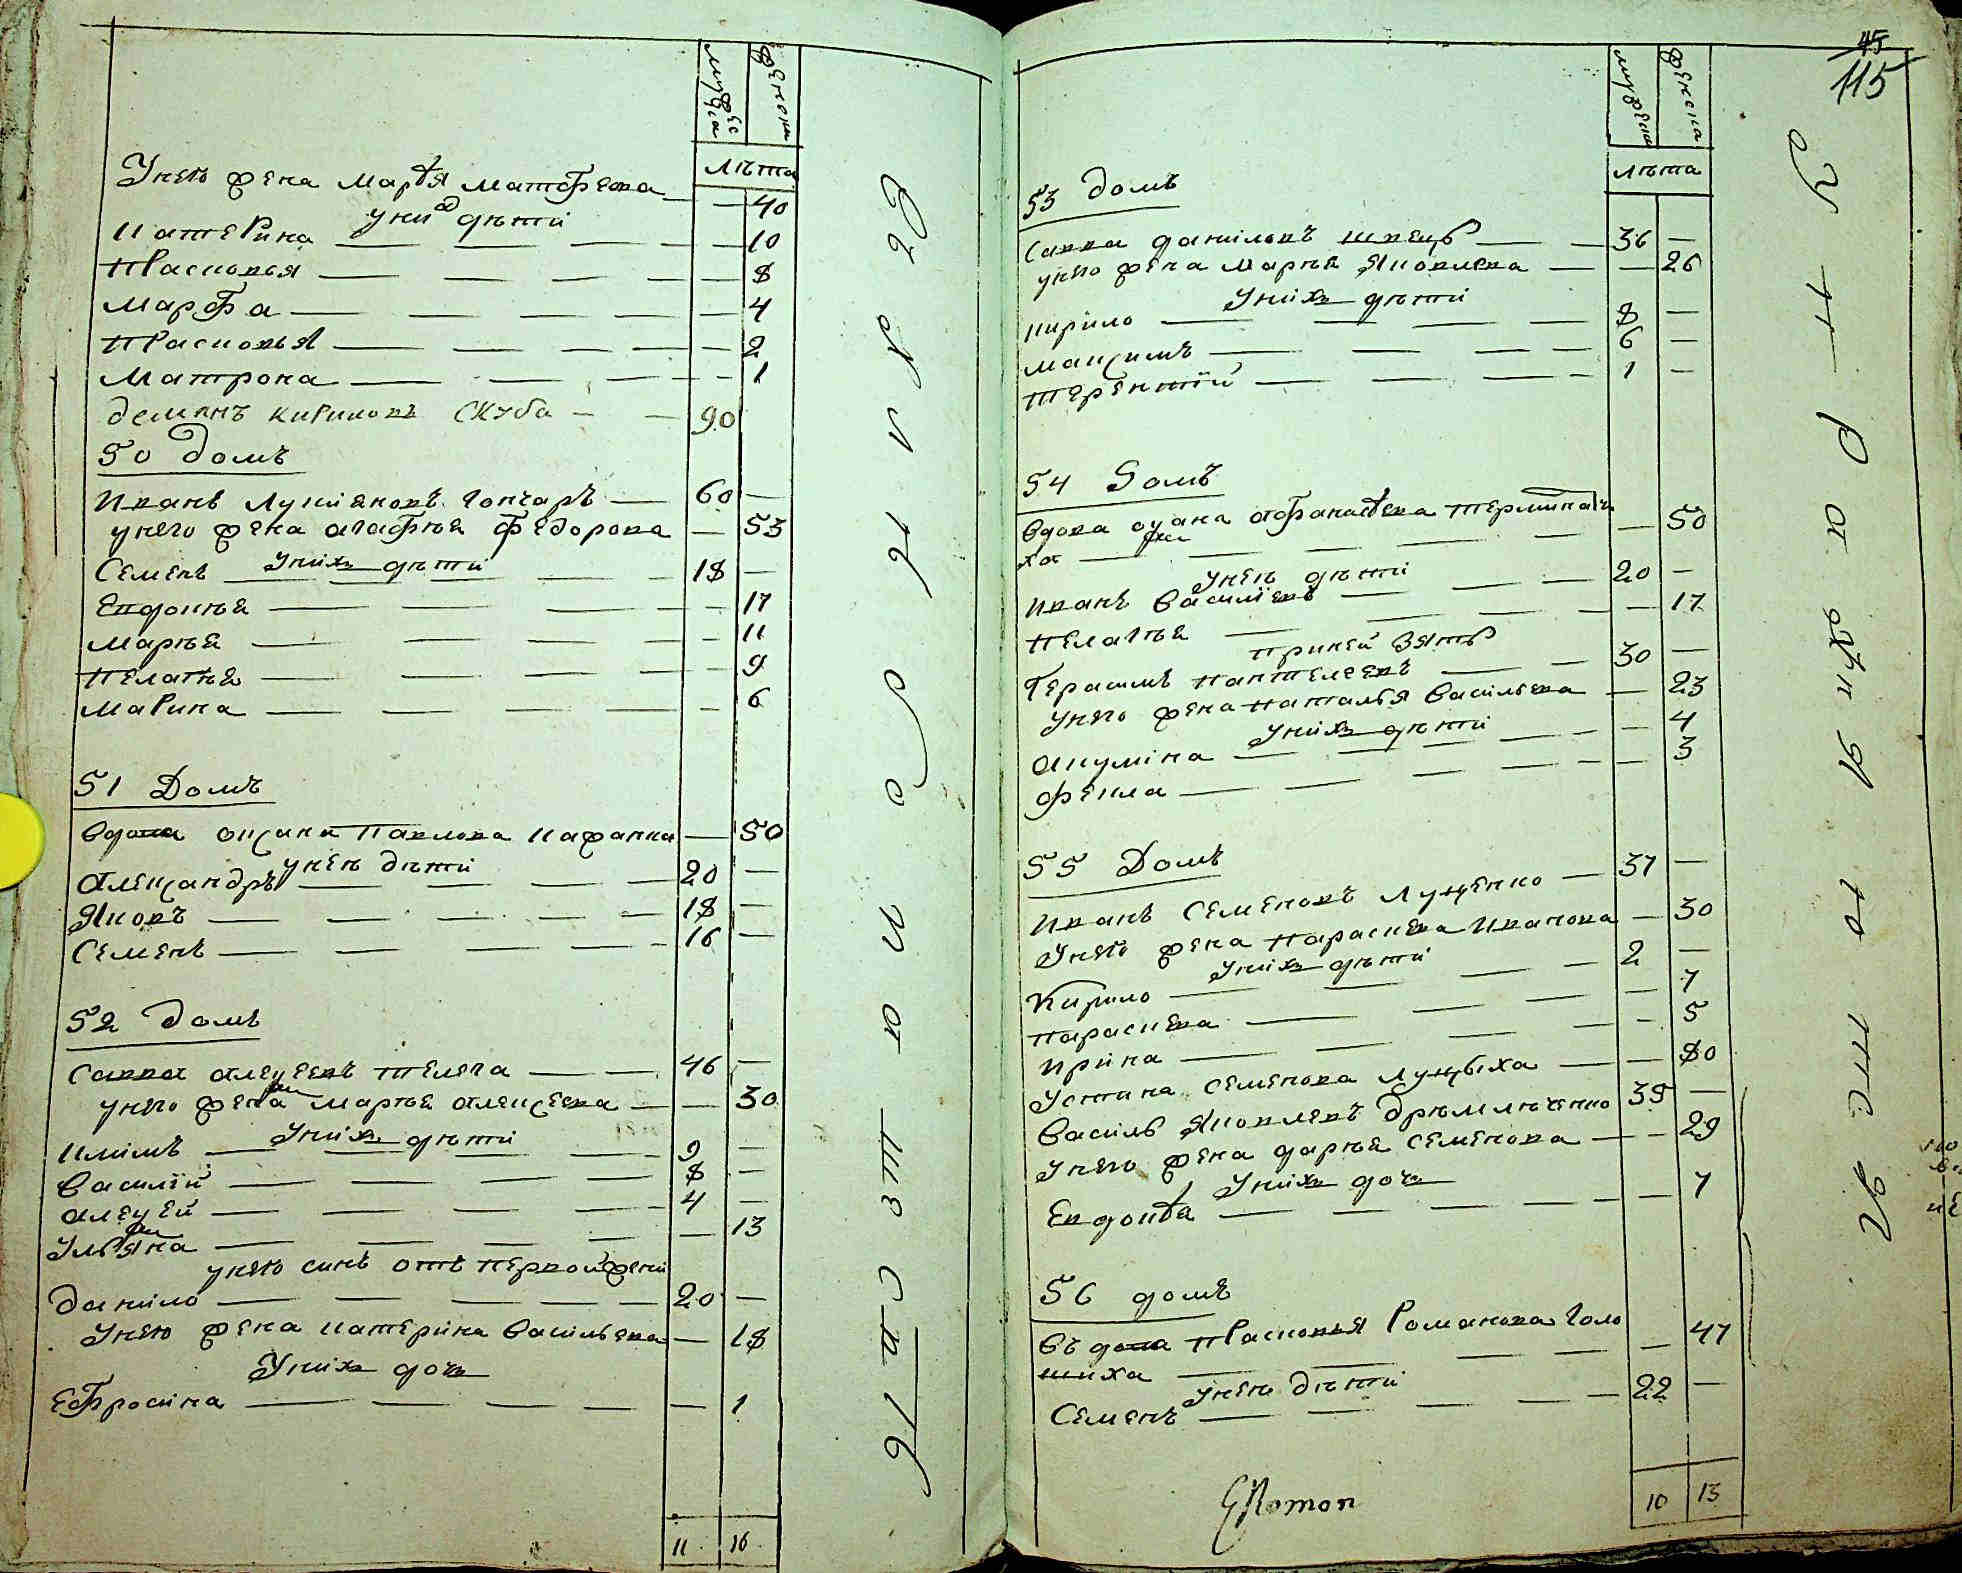 мужеска
женска
лѣта
У него жена марфія матфеева — 40
у них дѣти
катерина — 10
прасковья — 8
марфа — 4
прасковья — 2
матрона — 1
демянъ кириловъ скуба — 90
50 домъ
иванъ лукіяновъ гончаръ — 60 —
у него жена агафья федорова — 53
у нихъ дѣти
семенъ — 18 —
евдокия — 17
марья — 11
пелагия — 9
марина — 6
51 домъ
вдова оксана павлова кафанка — 50
у неѣ дѣти
александръ — 20 —
яковъ — 18 —
семенъ — 16 —
52 домъ
савва алексеевъ телега — 46 —
у него жена марья алексеева — 30
у нихъ дѣти
климъ — 9 —
василій — 8 —
алексей — 4 —
ульяна — 13
у него синъ отъ первой жени
данило — 20 —
у него жена катерина васильева — 18
у нихъ дочь
ефросина — 1
11 16
45
115
мужеска
женска
лѣта
53 домъ
савва даниловъ швецъ — 36 —
у него жена марья яковлева — 26
у нихъ дѣти
кирило — 8 —
максимъ — 6 —
терентій — 1 —
54 домъ
вдова оксана афанасіева
ха — 50
у неѣ дѣти
иванъ василіевъ — 20 —
пелагия — 17
при ней зять
герасимъ пантелеевъ — 30 —
у него жена наталья васильева — 23
у нихъ дѣти
акулина — 4
фекла — 3
55 домъ
иванъ семеновъ луценко — 37 —
у него жена параскева иванова — 30
у нихъ дѣти
кирило — 2 —
параскева — 7
ирина — 5
устина семенова луцыха — 80
василь яковлевъ дрѣмлюченко — 35 —
у него жена дарья семенова — 29
у нихъ дочь
евдокія — 7
56 домъ
въдова прасковья романова голо
шиха — 47
у неѣ дѣти
семенъ — 22 —
10 13